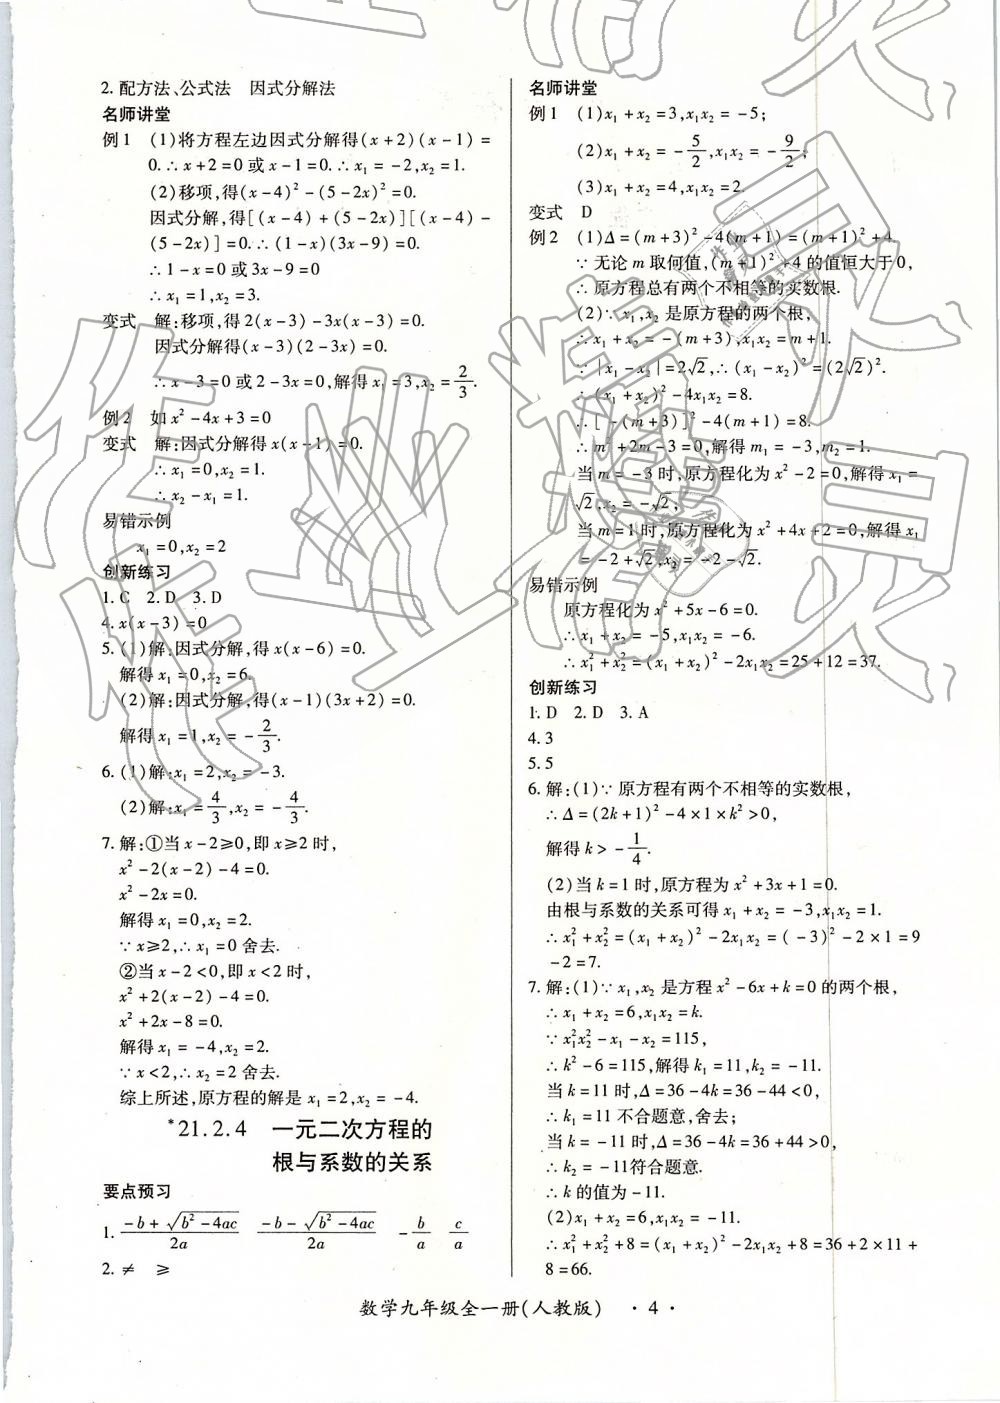 2. 配方法、公式法　因式分解法
名师讲堂
例1　(1)将方程左边因式分解得(x+2)(x-1)=
0.∴x+2=0或x-1=0.∴x₁=-2,x₂=1.
(2)移项,得(x-4)²-(5-2x)²=0.
因式分解,得[(x-4)+(5-2x)][(x-4)-
(5-2x)]=0.∴(1-x)(3x-9)=0.
∴1-x=0或3x-9=0
∴x₁=1,x₂=3.
变式　解:移项,得2(x-3)-3x(x-3)=0.
因式分解得(x-3)(2-3x)=0.
∴x-3=0或2-3x=0,解得x₁=3,x₂=2/3.
例2　如x²-4x+3=0
变式　解:因式分解得x(x-1)=0.
∴x₁=0,x₂=1.
∴x₂-x₁=1.
易错示例
x₁=0,x₂=2
创新练习
1. C　2. D　3. D
4. x(x-3)=0
5. (1)解:因式分解,得x(x-6)=0.
解得x₁=0,x₂=6.
(2)解:因式分解,得(x-1)(3x+2)=0.
解得x₁=1,x₂=-2/3.
6. (1)解:x₁=2,x₂=-3.
(2)解:x₁=4/3,x₂=-4/3.
7. 解:①当x-2≥0,即x≥2时,
x²-2(x-2)-4=0.
x²-2x=0.
解得x₁=0,x₂=2.
∵x≥2,∴x₁=0舍去.
②当x-2<0,即x<2时,
x²+2(x-2)-4=0.
x²+2x-8=0.
解得x₁=-4,x₂=2.
∵x<2,∴x₂=2舍去.
综上所述,原方程的解是x₁=2,x₂=-4.
*21.2.4　一元二次方程的
根与系数的关系
要点预习
1. (-b+√(b²-4ac))/2a　(-b-√(b²-4ac))/2a　-b/a　c/a
2. ≠　≥
名师讲堂
例1　(1)x₁+x₂=3,x₁x₂=-5;
(2)x₁+x₂=-5/2,x₁x₂=-9/2;
(3)x₁+x₂=4,x₁x₂=2.
变式　D
例2　(1)Δ=(m+3)²-4(m+1)=(m+1)²+4.
∵无论m取何值,(m+1)²+4的值恒大于0,
∴原方程总有两个不相等的实数根.
(2)∵x₁,x₂是原方程的两个根,
∴x₁+x₂=-(m+3),x₁x₂=m+1.
∵|x₁-x₂|=2√2,∴(x₁-x₂)²=(2√2)².
∴(x₁+x₂)²-4x₁x₂=8.
∴[-(m+3)]²-4(m+1)=8.
∴m²+2m-3=0,解得m₁=-3,m₂=1.
当m=-3时,原方程化为x²-2=0,解得x₁=
√2,x₂=-√2,
当m=1时,原方程化为x²+4x+2=0,解得x₁
=-2+√2,x₂=-2-√2.
易错示例
原方程化为x²+5x-6=0.
∴x₁+x₂=-5,x₁x₂=-6.
∴x₁²+x₂²=(x₁+x₂)²-2x₁x₂=25+12=37.
创新练习
1. D　2. D　3. A
4. 3
5. 5
6. 解:(1)∵原方程有两个不相等的实数根,
∴Δ=(2k+1)²-4×1×k²>0,
解得k>-1/4.
(2)当k=1时,原方程为x²+3x+1=0.
由根与系数的关系可得x₁+x₂=-3,x₁x₂=1.
∴x₁²+x₂²=(x₁+x₂)²-2x₁x₂=(-3)²-2×1=9
-2=7.
7. 解:(1)∵x₁,x₂是方程x²-6x+k=0的两个根,
∴x₁+x₂=6,x₁x₂=k.
∵x₁²x₂²-x₁-x₂=115,
∴k²-6=115,解得k₁=11,k₂=-11.
当k=11时,Δ=36-4k=36-44<0,
∴k₁=11不合题意,舍去;
当k=-11时,Δ=36-4k=36+44>0,
∴k₂=-11符合题意.
∴k的值为-11.
(2)x₁+x₂=6,x₁x₂=-11.
∴x₁²+x₂²+8=(x₁+x₂)²-2x₁x₂+8=36+2×11+
8=66.
数学九年级全一册(人教版)　·4·
作业精灵